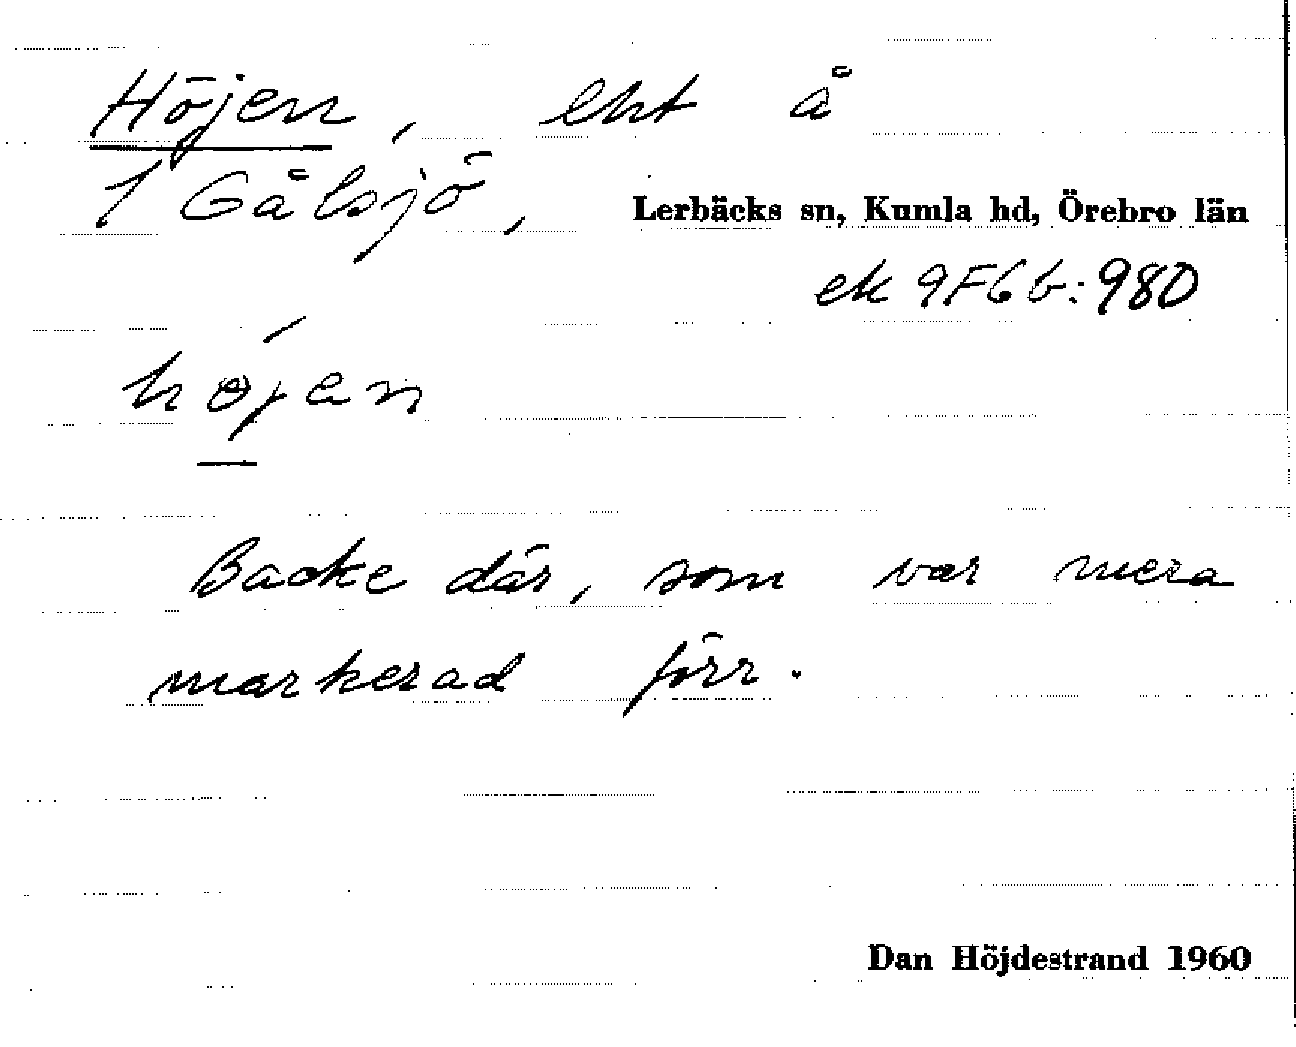 Höjen, eht å
1 Gålsjö,
Lerbäcks sn, Kumla hd, Örebro län
ek 9F6b:980
höjen
Backe där, som var mera
markerad förr.
Dan Höjdestrand 1960